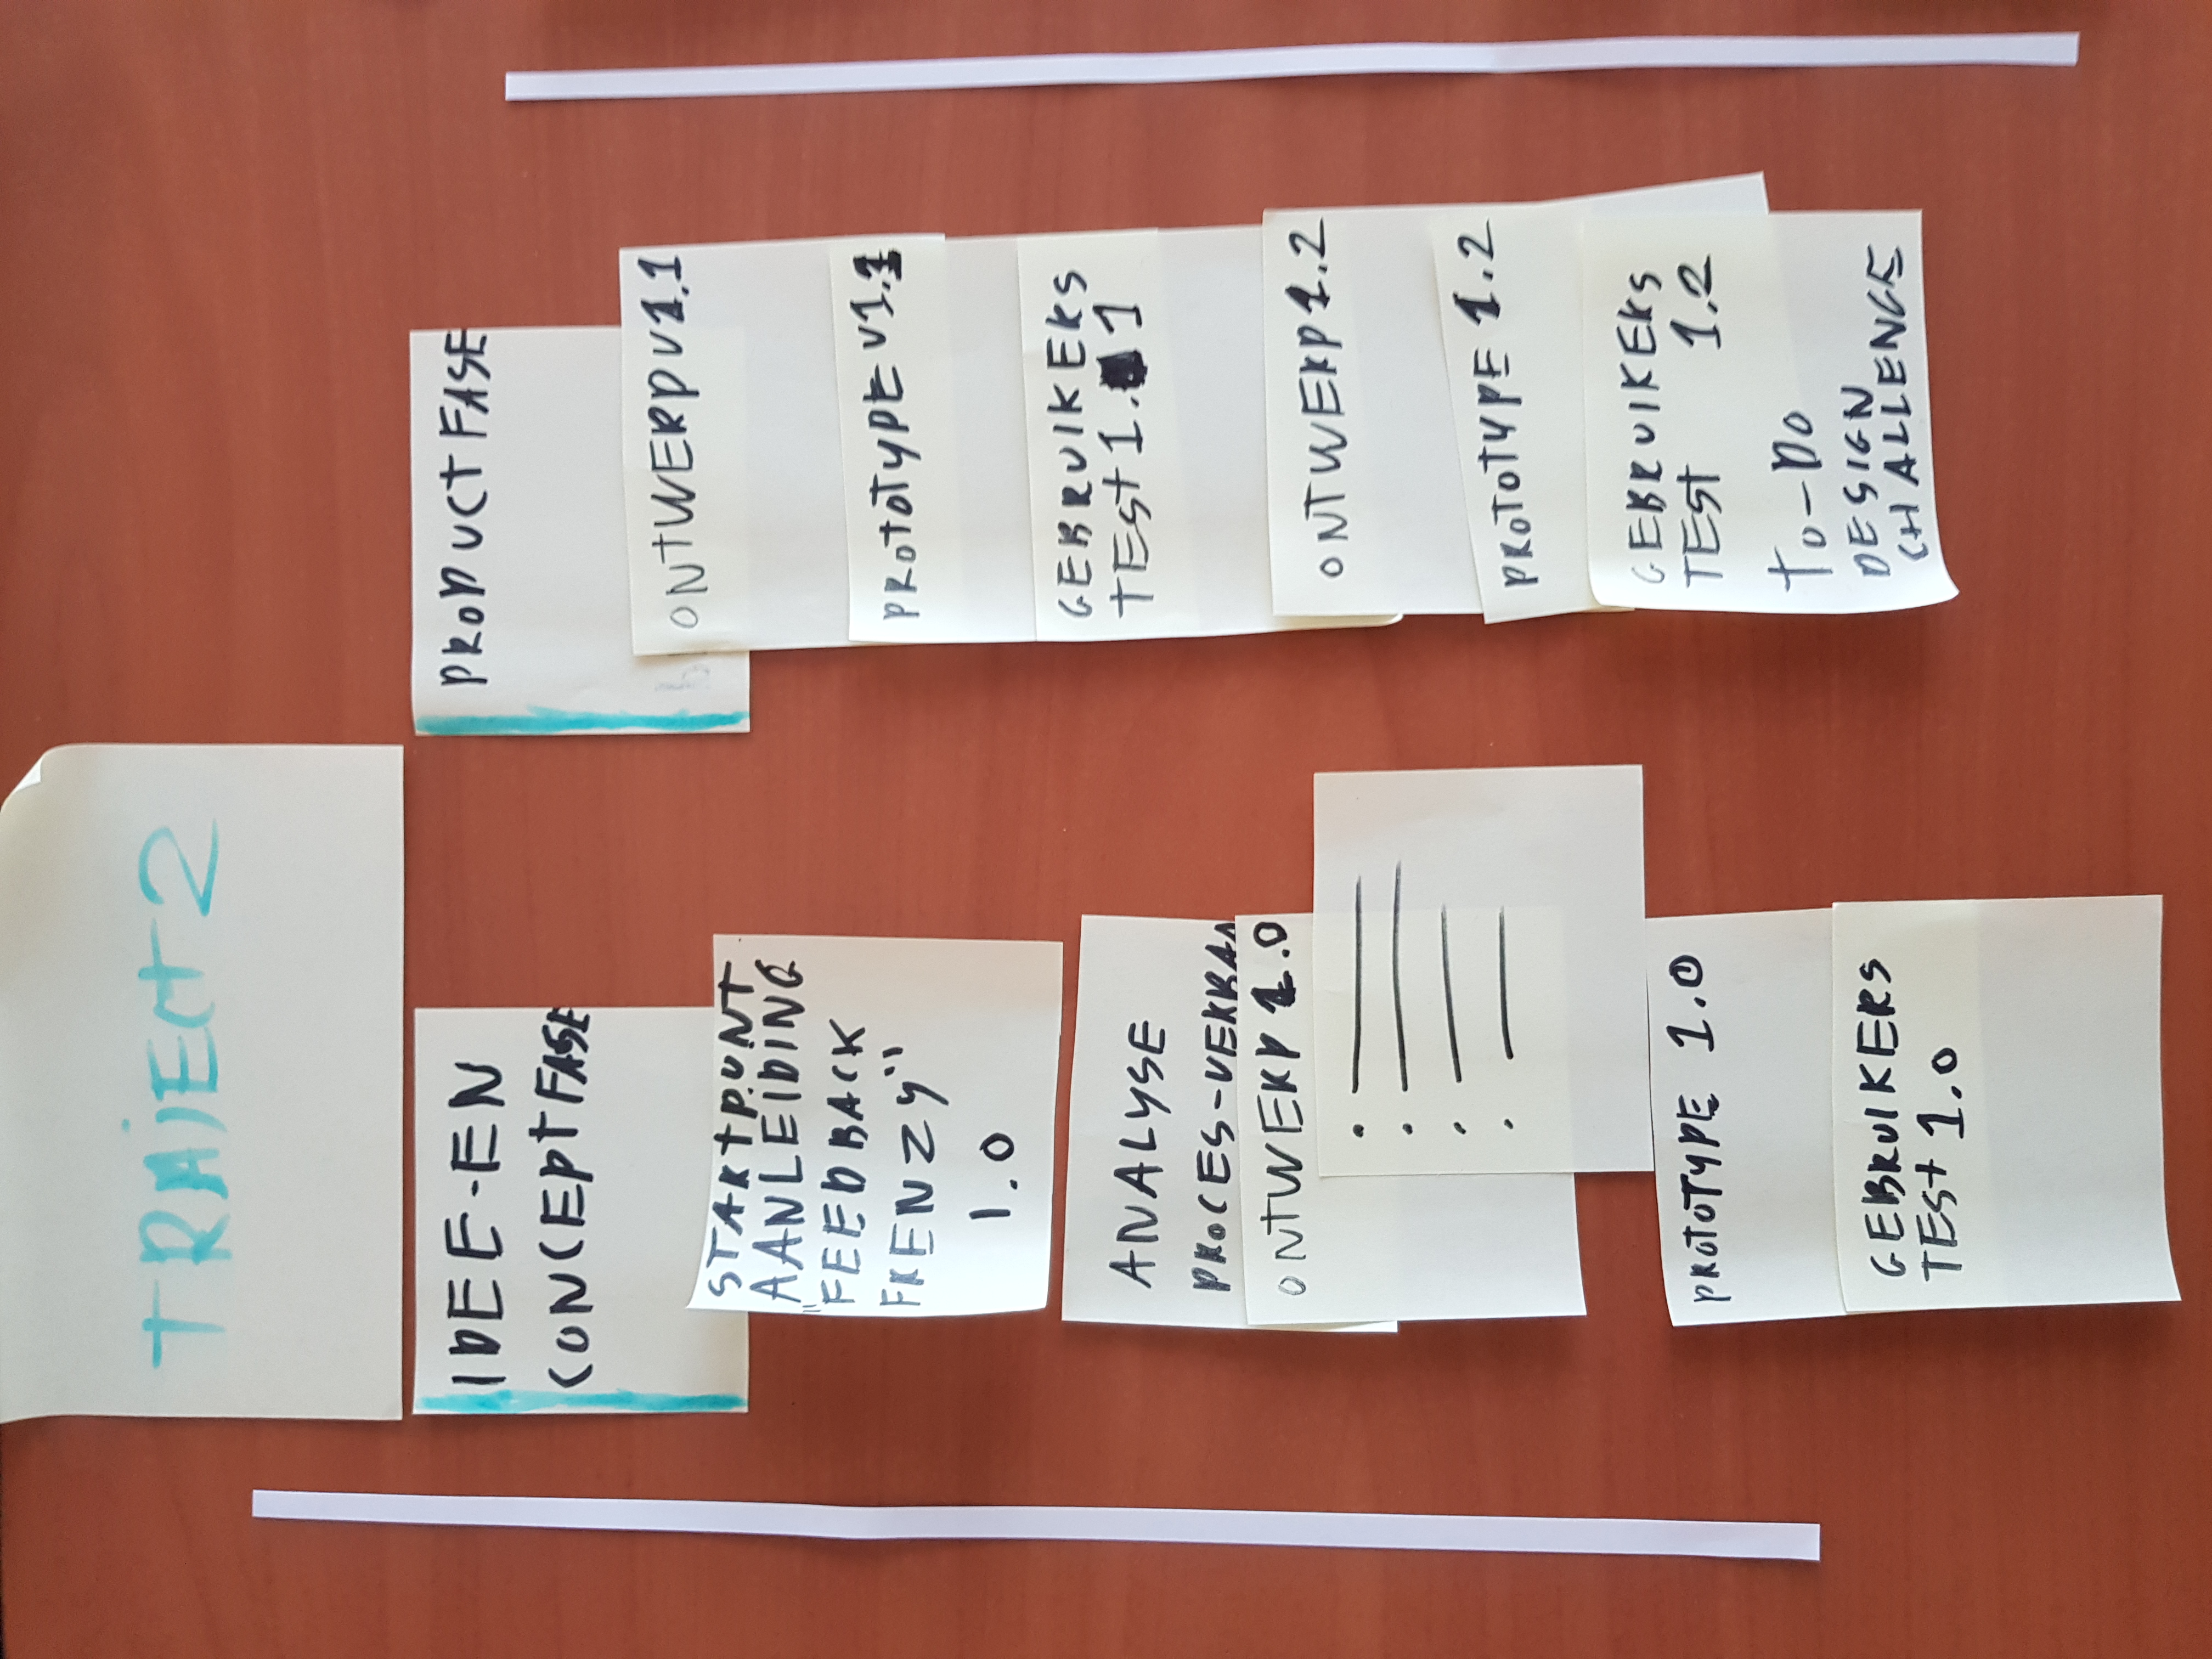 TRAJECT 2
IDEE-EN
CONCEPTFASE
STARTPUNT
AANLEIDING
"FEEDBACK
FRENZY"
1.0
ANALYSE
ONTWERP 1.0
PROTOTYPE 1.0
GEBRUIKERS
TEST 1.0
PRODUCTFASE
ONTWERP V1.1
PROTOTYPE V1.1
GEBRUIKERS
TEST 1.1
ONTWERP 1.2
PROTOTYPE 1.2
GEBRUIKERS
TEST 1.2
TO-DO
DESIGN
CHALLENGE